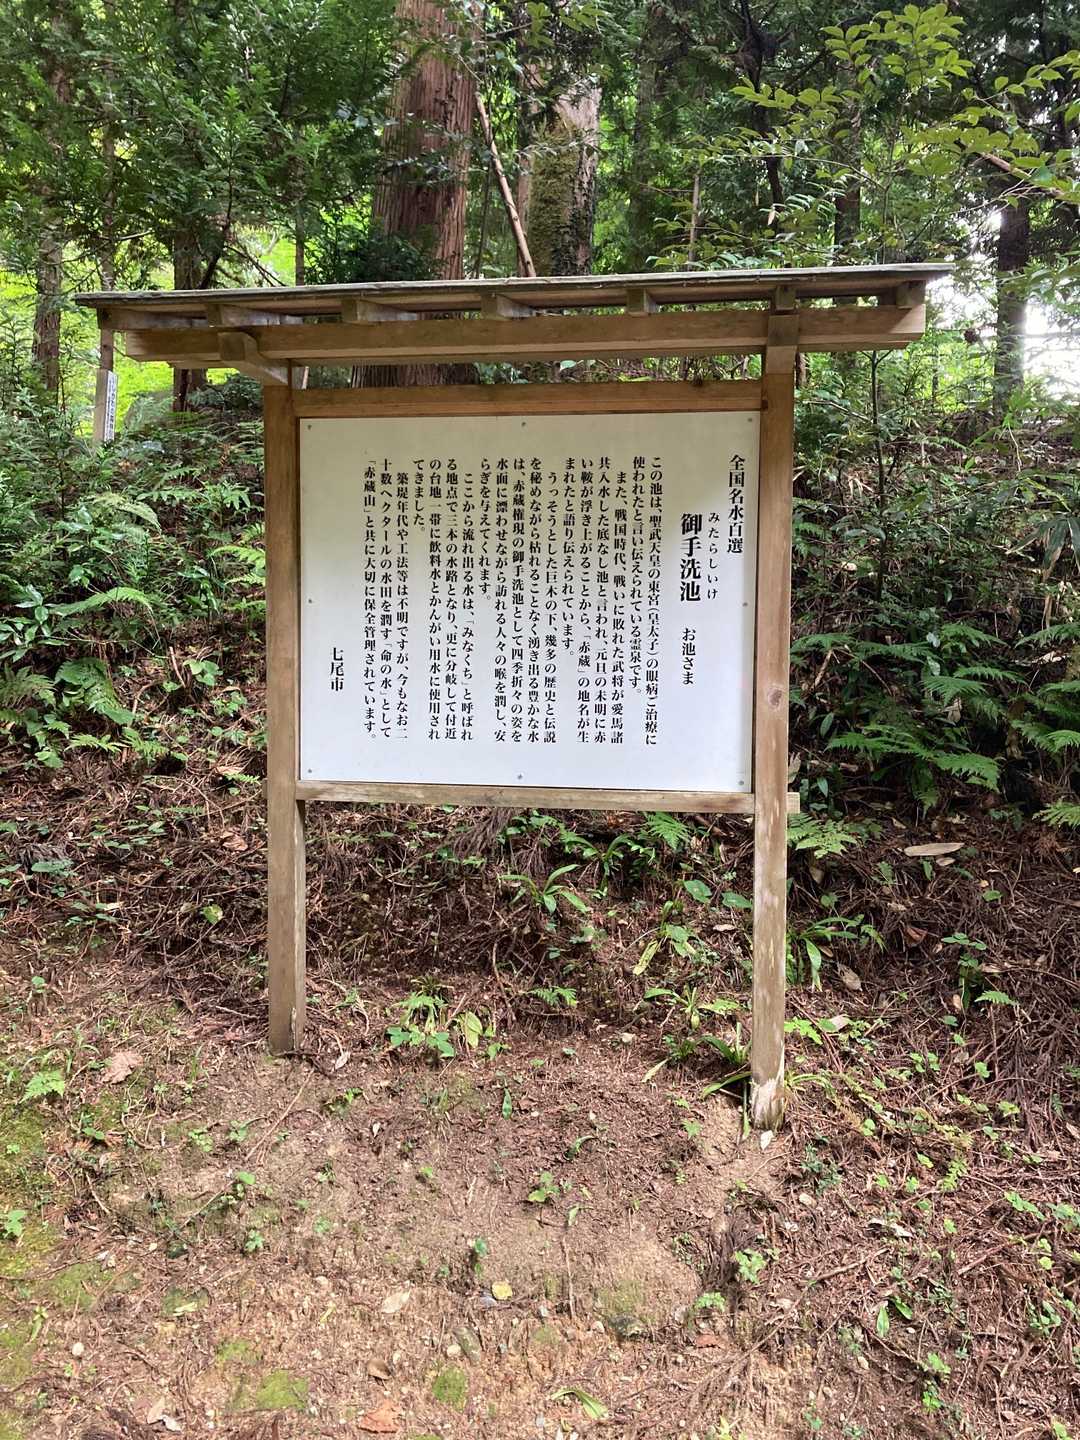 全国名水百選
みたらしいけ
御手洗池 お池さま
この池は、聖武天皇の東宮(皇太子)の眼病ご治療に
使われたと言い伝えられている霊泉です。
また、戦国時代、戦いに敗れた武将が愛馬諸
共入水した底なし池と言われ、元旦の未明に赤
い鞍が浮き上がることから、「赤蔵」の地名が生
まれたと語り伝えられています。
うっそうとした巨木の下、幾多の歴史と伝説
を秘めながら枯れることなく湧き出る豊かな水
は、赤蔵権現の御手洗池として四季折々の姿を
水面に漂わせながら訪れる人々の喉を潤し、安
らぎを与えてくれます。
ここから流れ出る水は、「みなくち」と呼ばれ
る地点で三本の水路となり、更に分岐して付近
の台地一帯に飲料水とかんがい用水に使用され
てきました。
築堤年代や工法等は不明ですが、今もなお二
十数ヘクタールの水田を潤す「命の水」として
「赤蔵山」と共に大切に保全管理されています。
七尾市